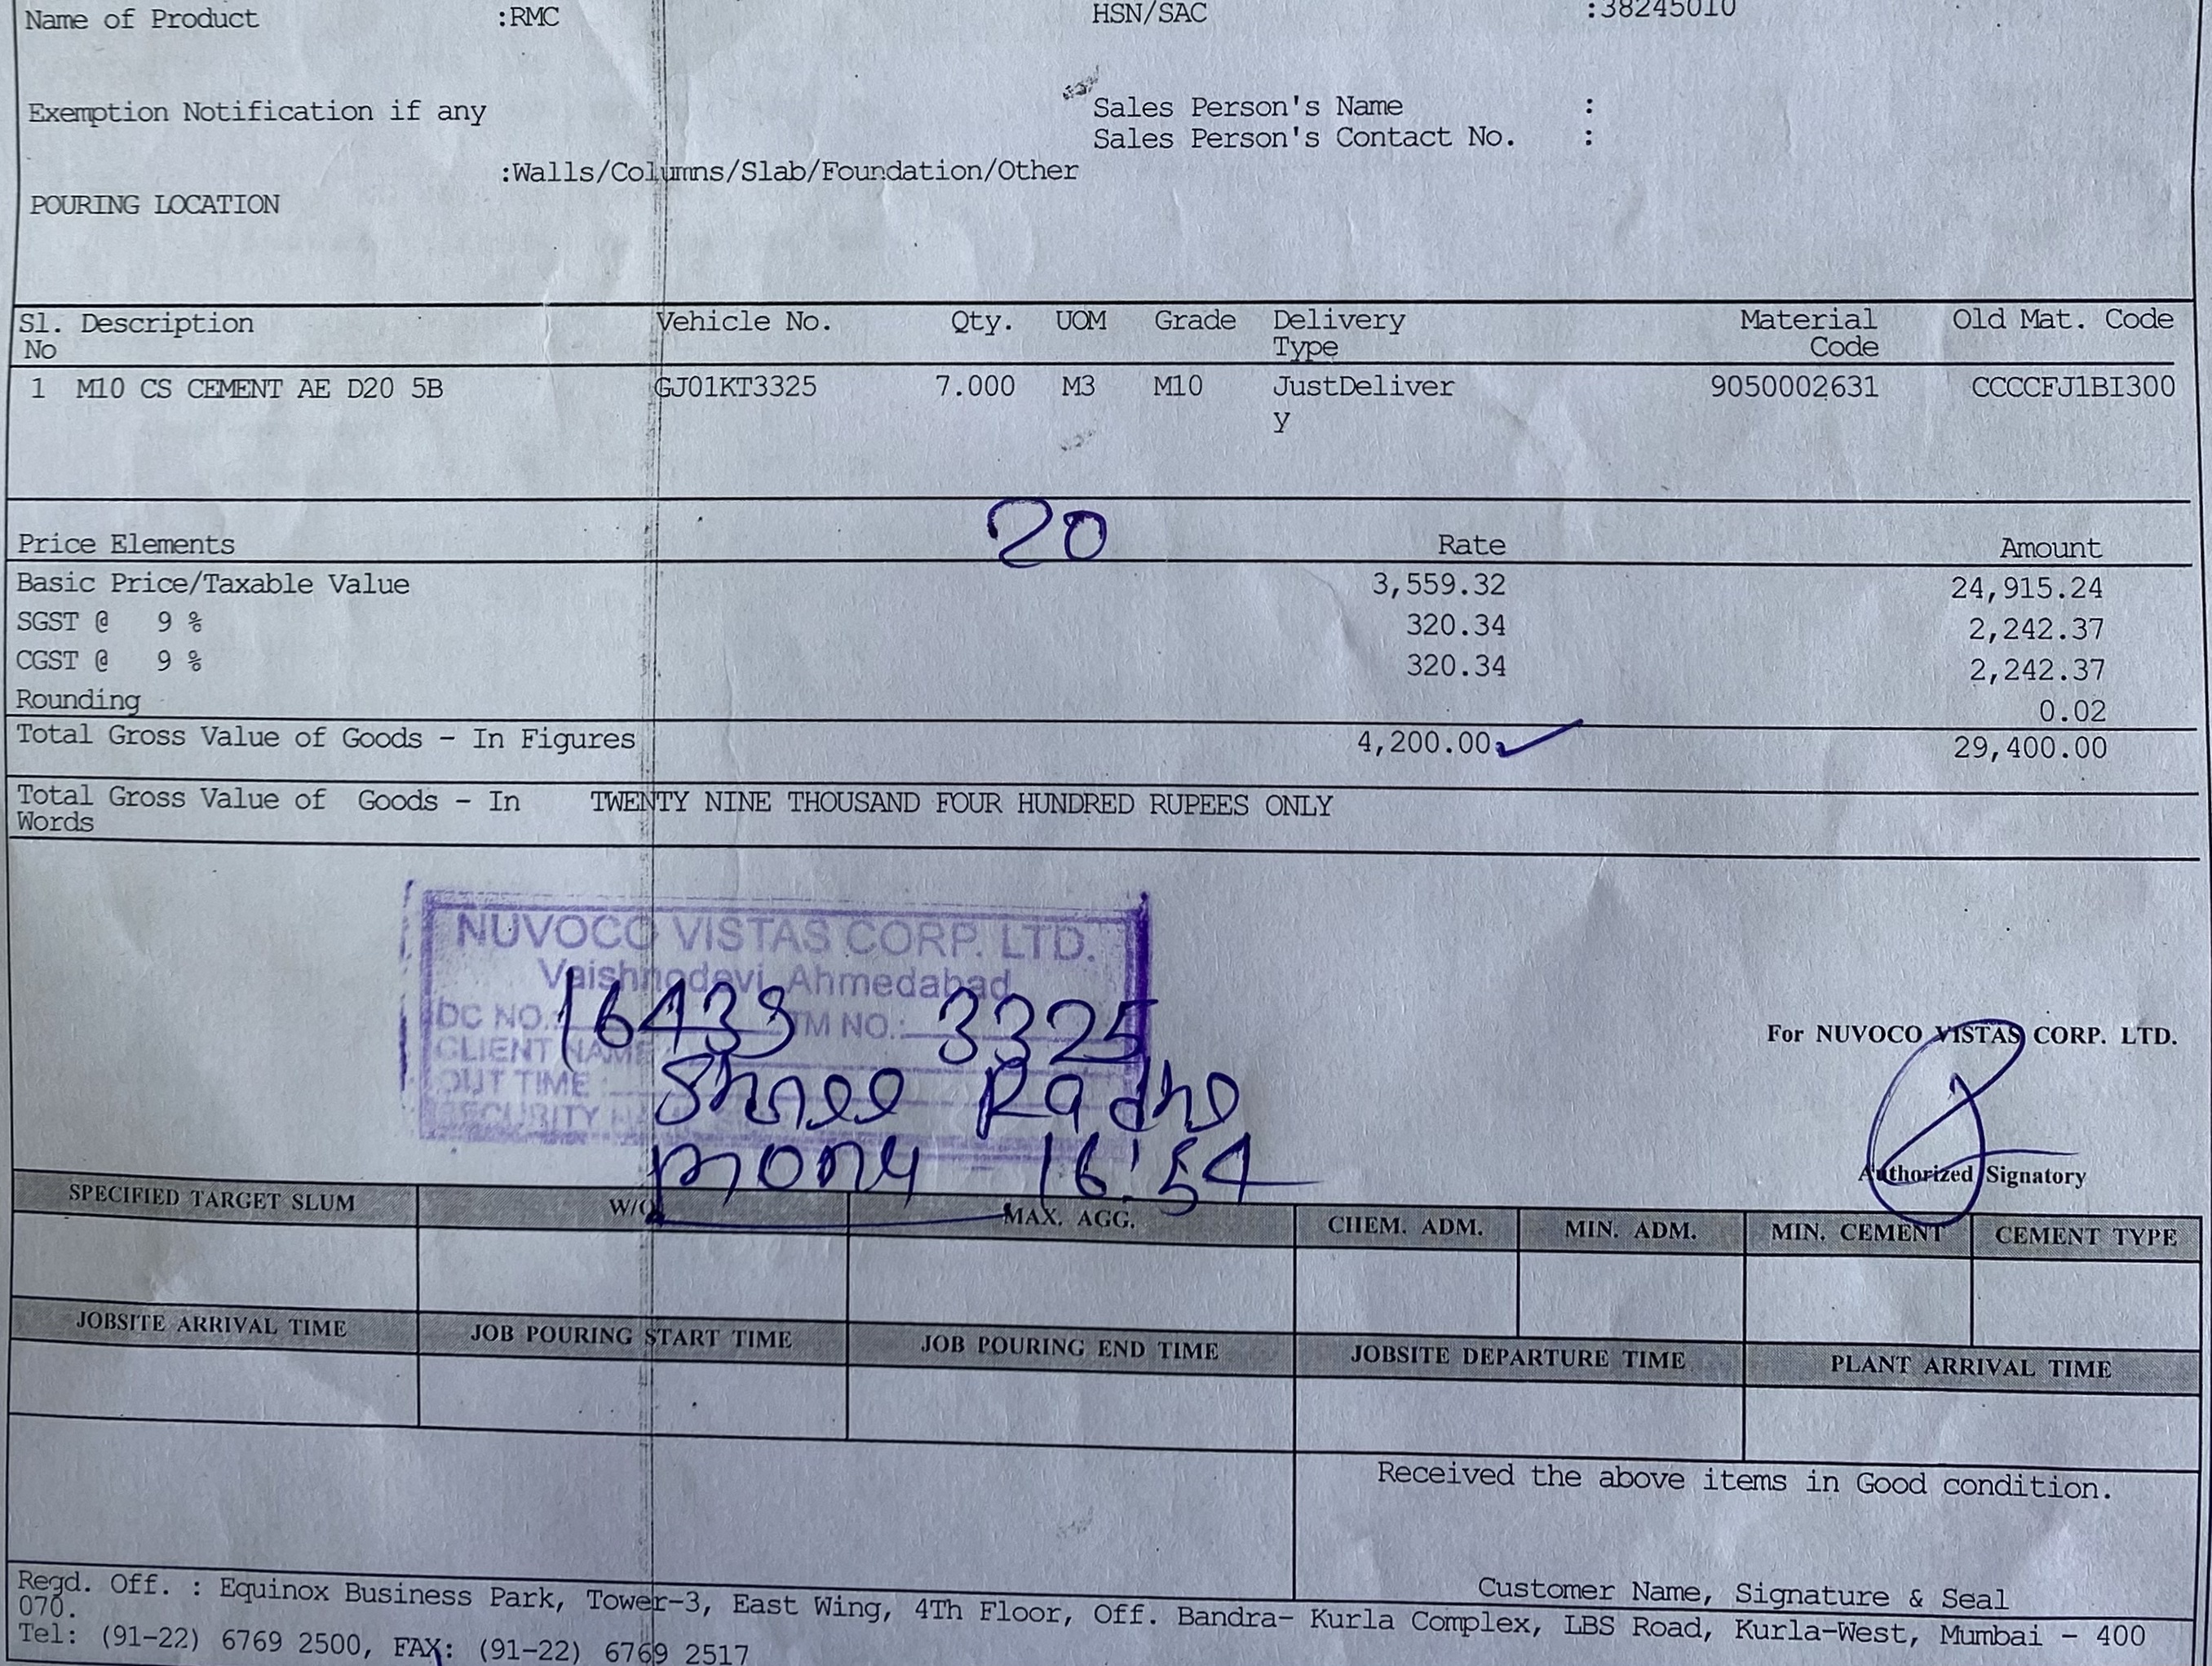 Name of Product :RMC HSN/SAC :38245010
Exemption Notification if any
Sales Person's Name :
Sales Person's Contact No. :
:Walls/Columns/Slab/Foundation/Other
POURING LOCATION
Sl. Description Vehicle No. Qty. UOM Grade Delivery Material Old Mat. Code
No Type Code
1 M10 CS CEMENT AE D20 5B GJ01KT3325 7.000 M3 M10 JustDeliver 9050002631 CCCCFJ1BI300
y
20
Price Elements Rate Amount
Basic Price/Taxable Value 3,559.32 24,915.24
SGST @ 9 % 320.34 2,242.37
CGST @ 9 % 320.34 2,242.37
Rounding 0.02
Total Gross Value of Goods - In Figures 4,200.00 29,400.00
Total Gross Value of Goods - In TWENTY NINE THOUSAND FOUR HUNDRED RUPEES ONLY
Words
NUVOCO VISTAS CORP. LTD.
Vaishnodevi, Ahmedabad
DC NO.: 16433 TM NO.: 3325
CLIENT NAME Shree Radhe
OUT TIME 16:54
SECURITY
For NUVOCO VISTAS CORP. LTD.
Authorized Signatory
SPECIFIED TARGET SLUM MAX. AGG. CHEM. ADM. MIN. ADM. MIN. CEMENT CEMENT TYPE
JOBSITE ARRIVAL TIME JOB POURING START TIME JOB POURING END TIME JOBSITE DEPARTURE TIME PLANT ARRIVAL TIME
Received the above items in Good condition.
Customer Name, Signature & Seal
Regd. Off. : Equinox Business Park, Tower-3, East Wing, 4Th Floor, Off. Bandra- Kurla Complex, LBS Road, Kurla-West, Mumbai - 400
070.
Tel: (91-22) 6769 2500, FAX: (91-22) 6769 2517